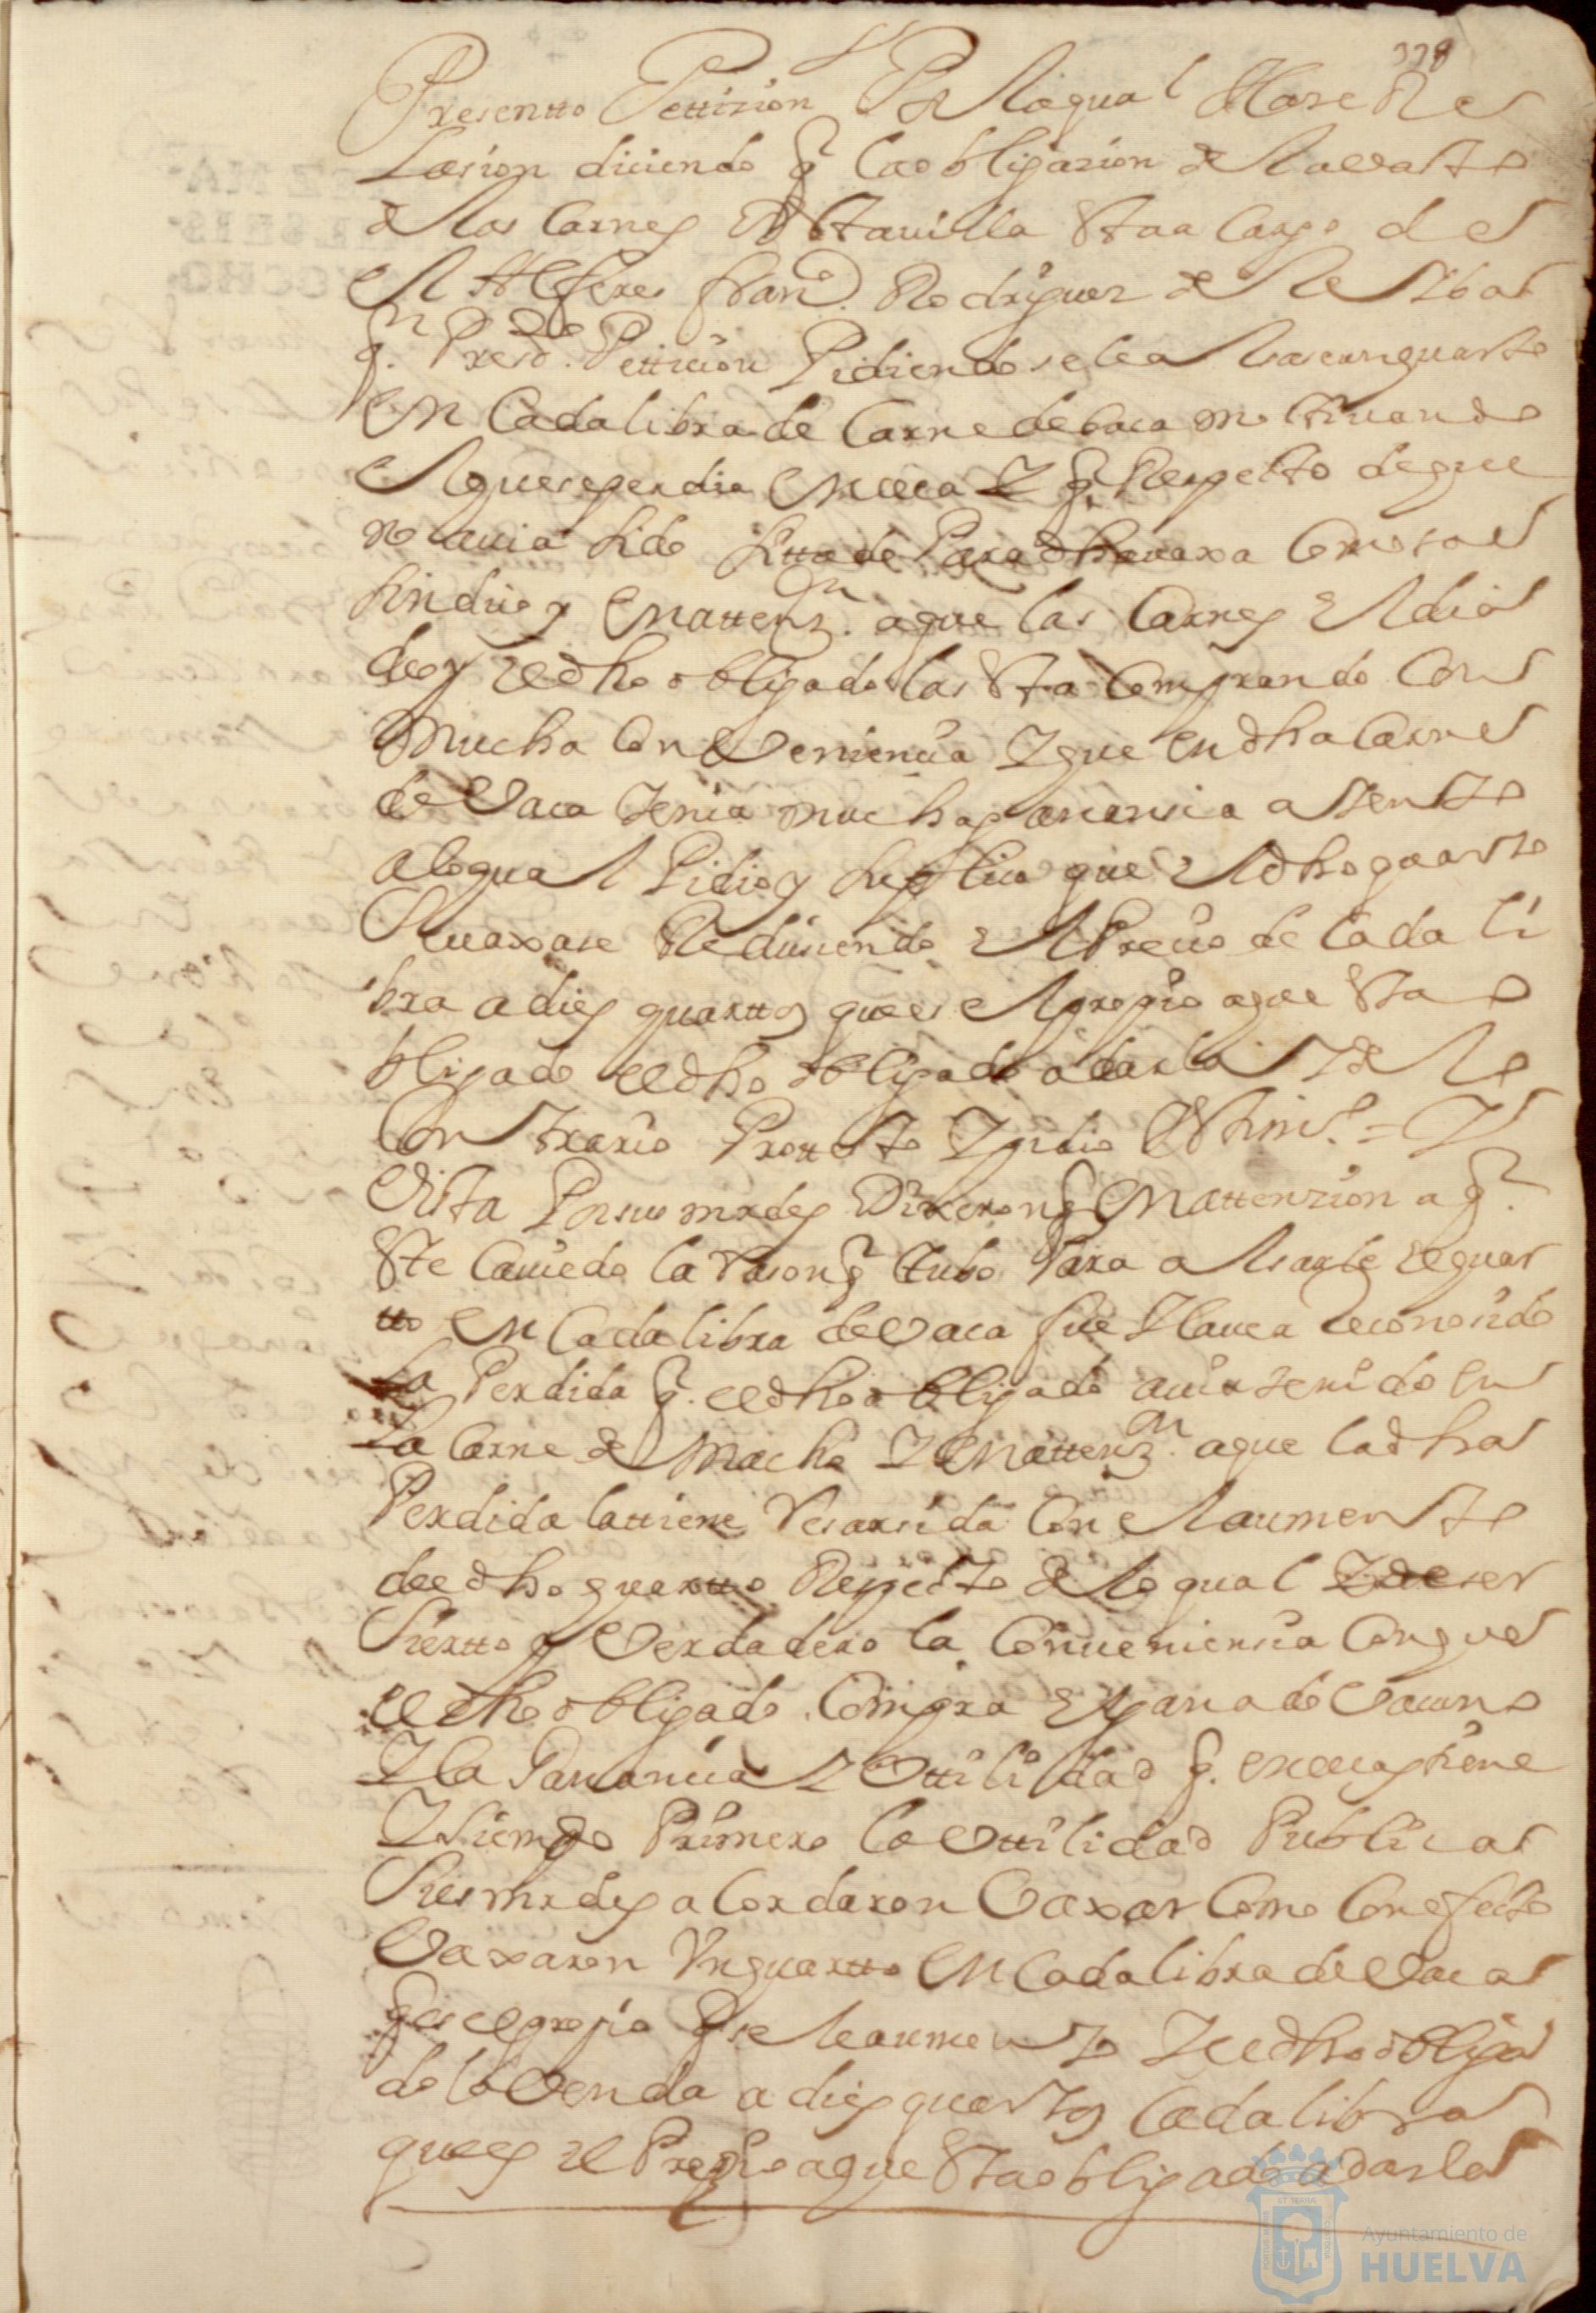 328
Presentto Pettision Por la qual Hase Re
lasion diciendo q la obligazion de el avasto
de las Carnes de Esta villa Esta a Cargo de
el Alferes fran.co Rodriguez de
q.n Pres.do Petticion Pidiendo se le alsase un quarto
en Cada libra de Carne de baca motivando
el que se perdia en ella Y q Respecto de que
no avia sido Para dha vaxa Como sa el
sindico y en attenz.n a que las Carnes el dia
de oy el dho obligado las Esta Comprando Con
mucha Conveniencia Y que en dha Carne
de Vaca tenia mucha ganansia atento
a lo qual Pidio y suplico que el dho quarto
se vaxase Reduciendo el Precio de Cada li
bra a dies quarttos que es el propio a que Esta o
bligado el dho obligado a darla Y de lo
Contrario Protesto Y pidio testim.o = Y
Vista Por sus mrdes Dixeron q en attenzion a q.
Este Cavildo la rason q tubo Para alsarle el quar
tto en Cada libra de Vaca fue Y la vea reconosido
La Perdida q. el dho obligado avia tenido en
La Carne de macho Y en attenz.n a que la dha
Perdida la ttiene resarsida Con el aumento
de el dho quartto Respecto de lo qual Y de ser
sierto y Verdadero la Conveniensia Con que
el dho obligado Compra el ganado Vacuno
Y la Ganancia Y Uttilidad q. en ella tiene
Y siendo Primero la Uttilidad Publica
Sus mrdes a Cordaron Vaxar Como Con efecto
Vaxaron Un quartto en Cada libra de Vaca
q es el propio q se le aumento Y el dho obliga
do la Venda a dies quartos Cada libra
que es el Propio a que Esta obligado a darla
Ayuntamiento de
HUELVA